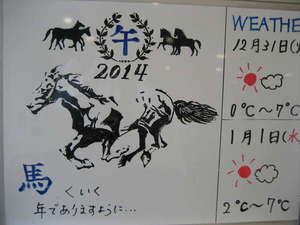 午
2014
馬くいく
年でありますように…
WEATHE
12月31日(
0℃~7℃
1月1日(水
2℃~7℃